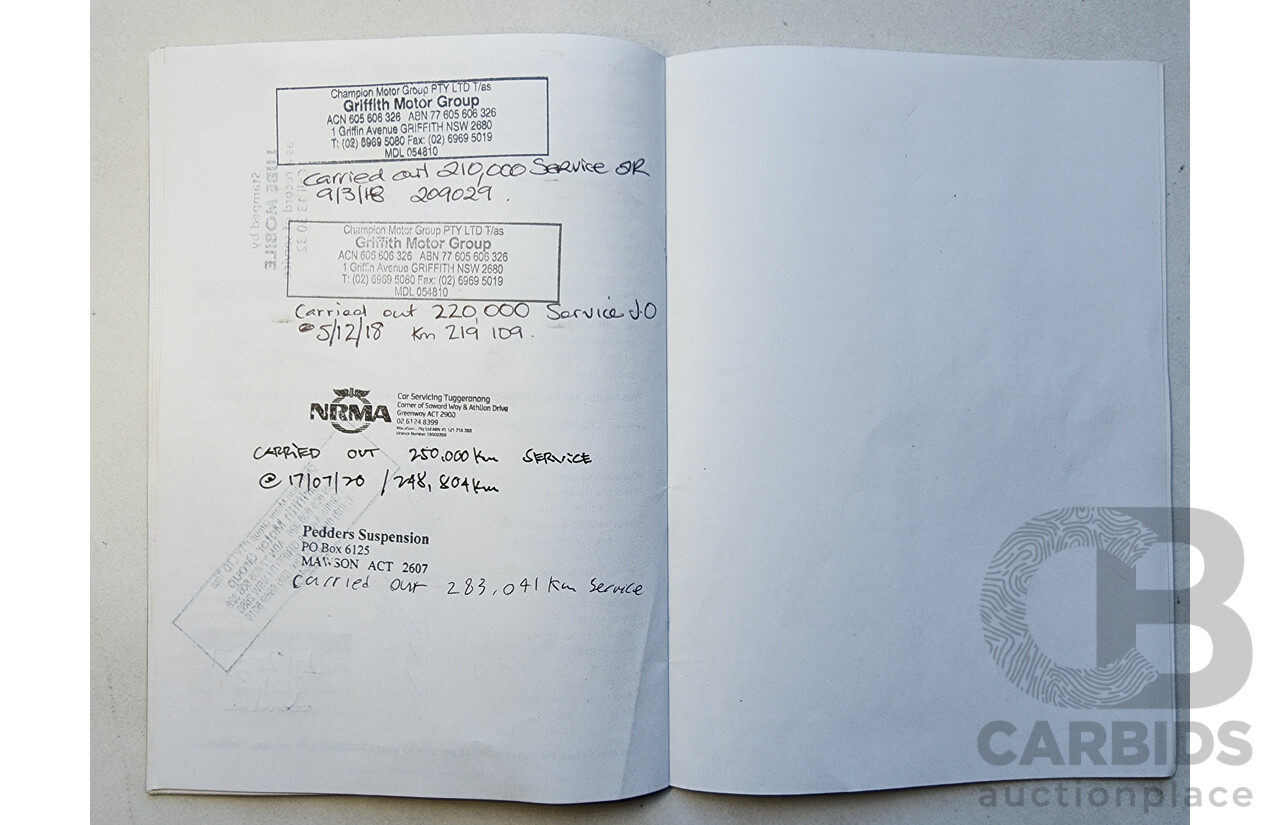 Champion Motor Group PTY LTD T/as
Griffith Motor Group
ACN 605 606 326 ABN 77 605 606 326
1 Griffin Avenue GRIFFITH NSW 2680
T: (02) 6969 5080 Fax: (02) 6969 5019
MDL 054810
Carried out 210,000 Service
9/3/18 209029.
Champion Motor Group PTY LTD T/as
Griffith Motor Group
ACN 605 606 326 ABN 77 605 606 326
1 Griffin Avenue GRIFFITH NSW 2680
T: (02) 6969 5080 Fax: (02) 6969 5019
MDL 054810
Carried out 220,000 Service J.O
@ 5/12/18 Km 219 109.
NRMA
Car Servicing Tuggeranong
Corner of Soward Way & Athllon Drive
Greenway ACT 2900
02 6124 8399
CARRIED OUT 250,000 Km SERVICE
@ 17/07/20 / 248,804 Km
Pedders Suspension
PO Box 6125
MAWSON ACT 2607
Carried out 283,041 Km Service
Stamped by
TUBE MOBILE
CARBIDS
auctionplace